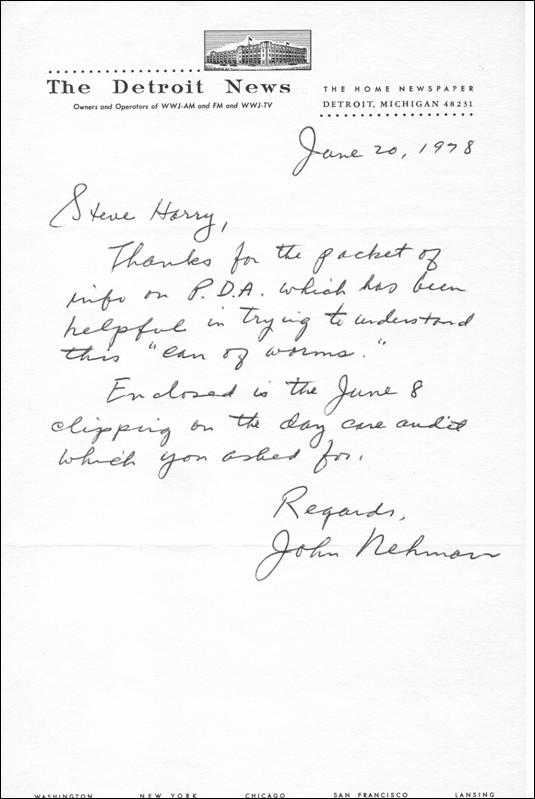 The Detroit News
Owners and Operators of WWJ-AM and FM and WWJ-TV
THE HOME NEWSPAPER
DETROIT, MICHIGAN 48231
June 20, 1978
Steve Harry,
Thanks for the packet of
info on P.D.A. which has been
helpful in trying to understand
this "can of worms."
Enclosed is the June 8
clipping on the day care audit
which you asked for.
Regards,
John Nehman
WASHINGTON NEW YORK CHICAGO SAN FRANCISCO LANSING